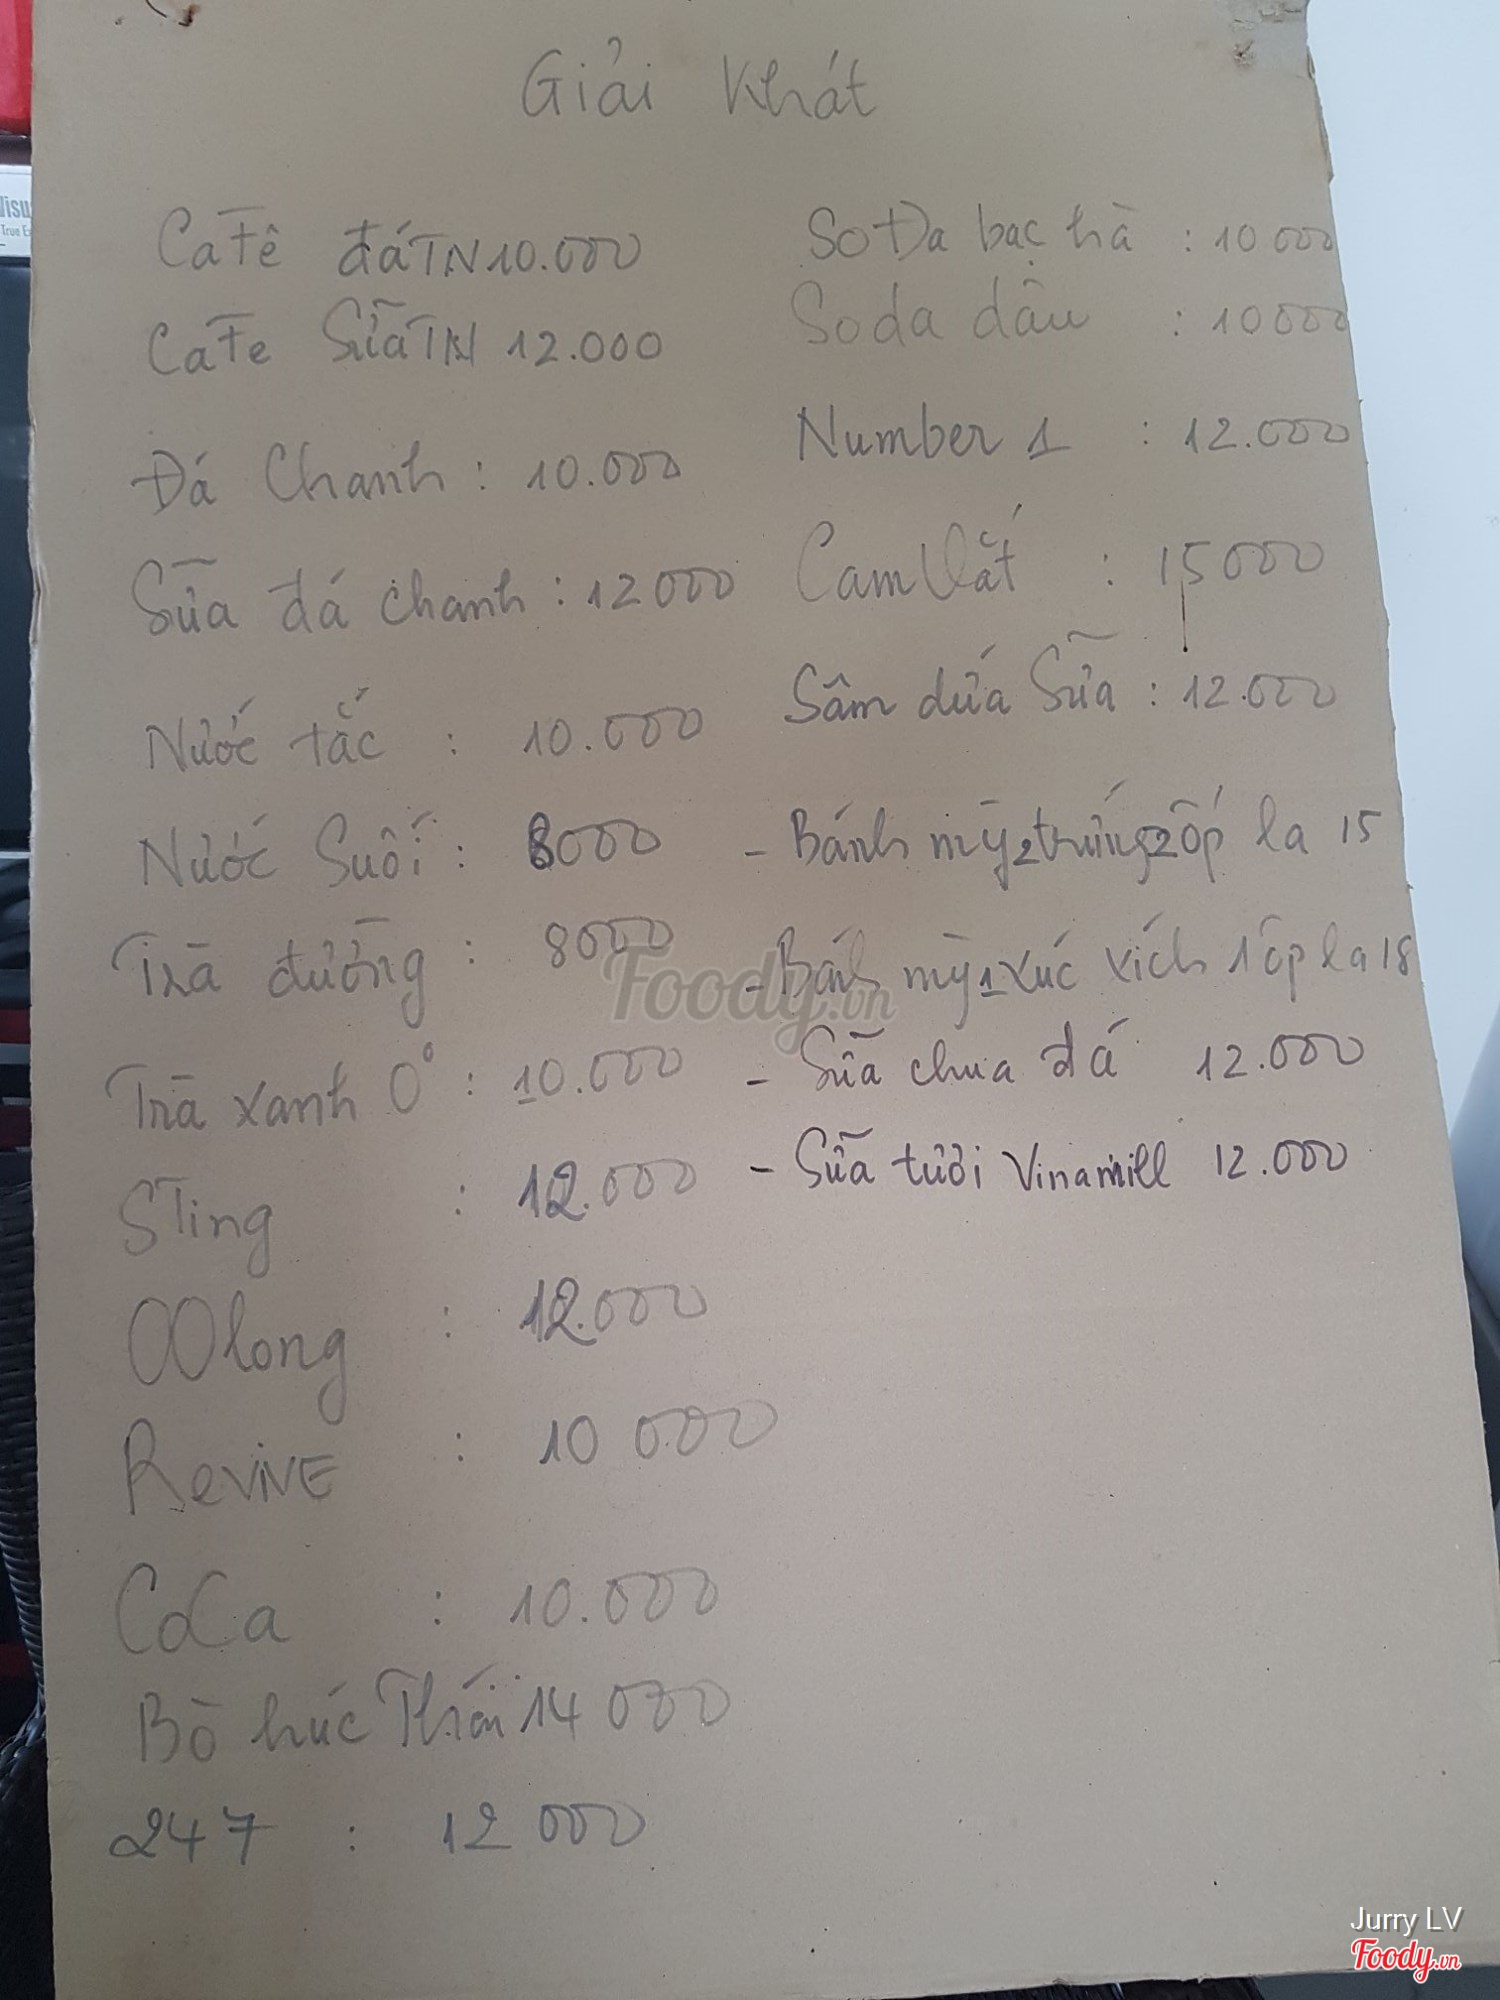 Giải Khát
CaFê đá TN 10.000
CaFe Sữa TN 12.000
Đá Chanh : 10.000
Sữa đá chanh : 12000
Nước tắc : 10.000
Nước Suối : 8000
Trà đường : 8000
Trà xanh 0° : 10.000
STing : 12.000
OOlong : 12.000
ReviVE : 10 000
CoCa : 10.000
Bò húc Thái 14 000
247 : 12 000
SoĐa bạc hà : 10 000
Soda dâu : 10000
Number 1 : 12.000
Cam Vắt : 15000
Sâm dứa Sữa : 12.000
- Bánh mỳ 2 trứng 2 ốp la 15
- Bánh mỳ 1 xúc xích 1 ốp la 18
- Sữa chua đá 12.000
- Sữa tươi Vinamill 12.000
Foody.vn
Jurry LV
Foody.vn
Visu
True E